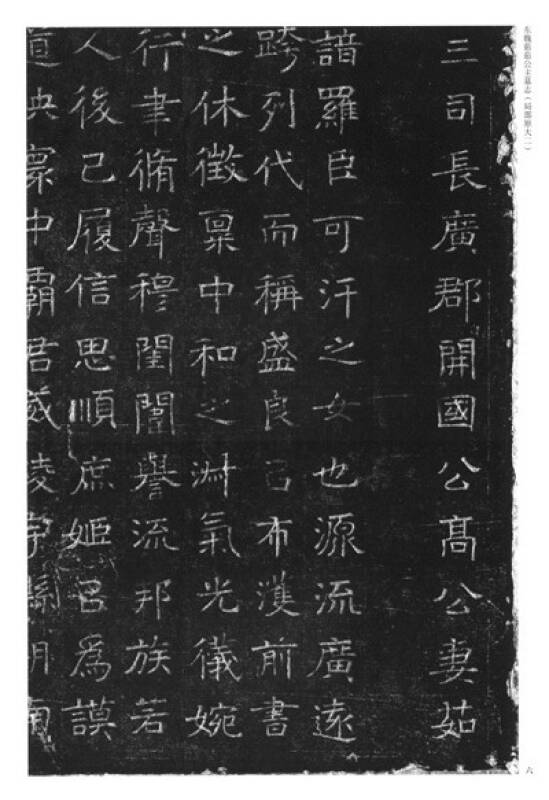 东魏茹茹公主墓志（局部原大二）
三司長廣郡開國公高公妻茹
諳羅臣可汗之女也源流廣遠
跨列代而稱盛良已布濩前書
之休徵稟中和之淑氣光儀婉
行聿脩聲穆閨闈譽流邦族若
人後己履信思順庶姬㠯爲謨
道映寰中霸君威稜宇縣朔南
六